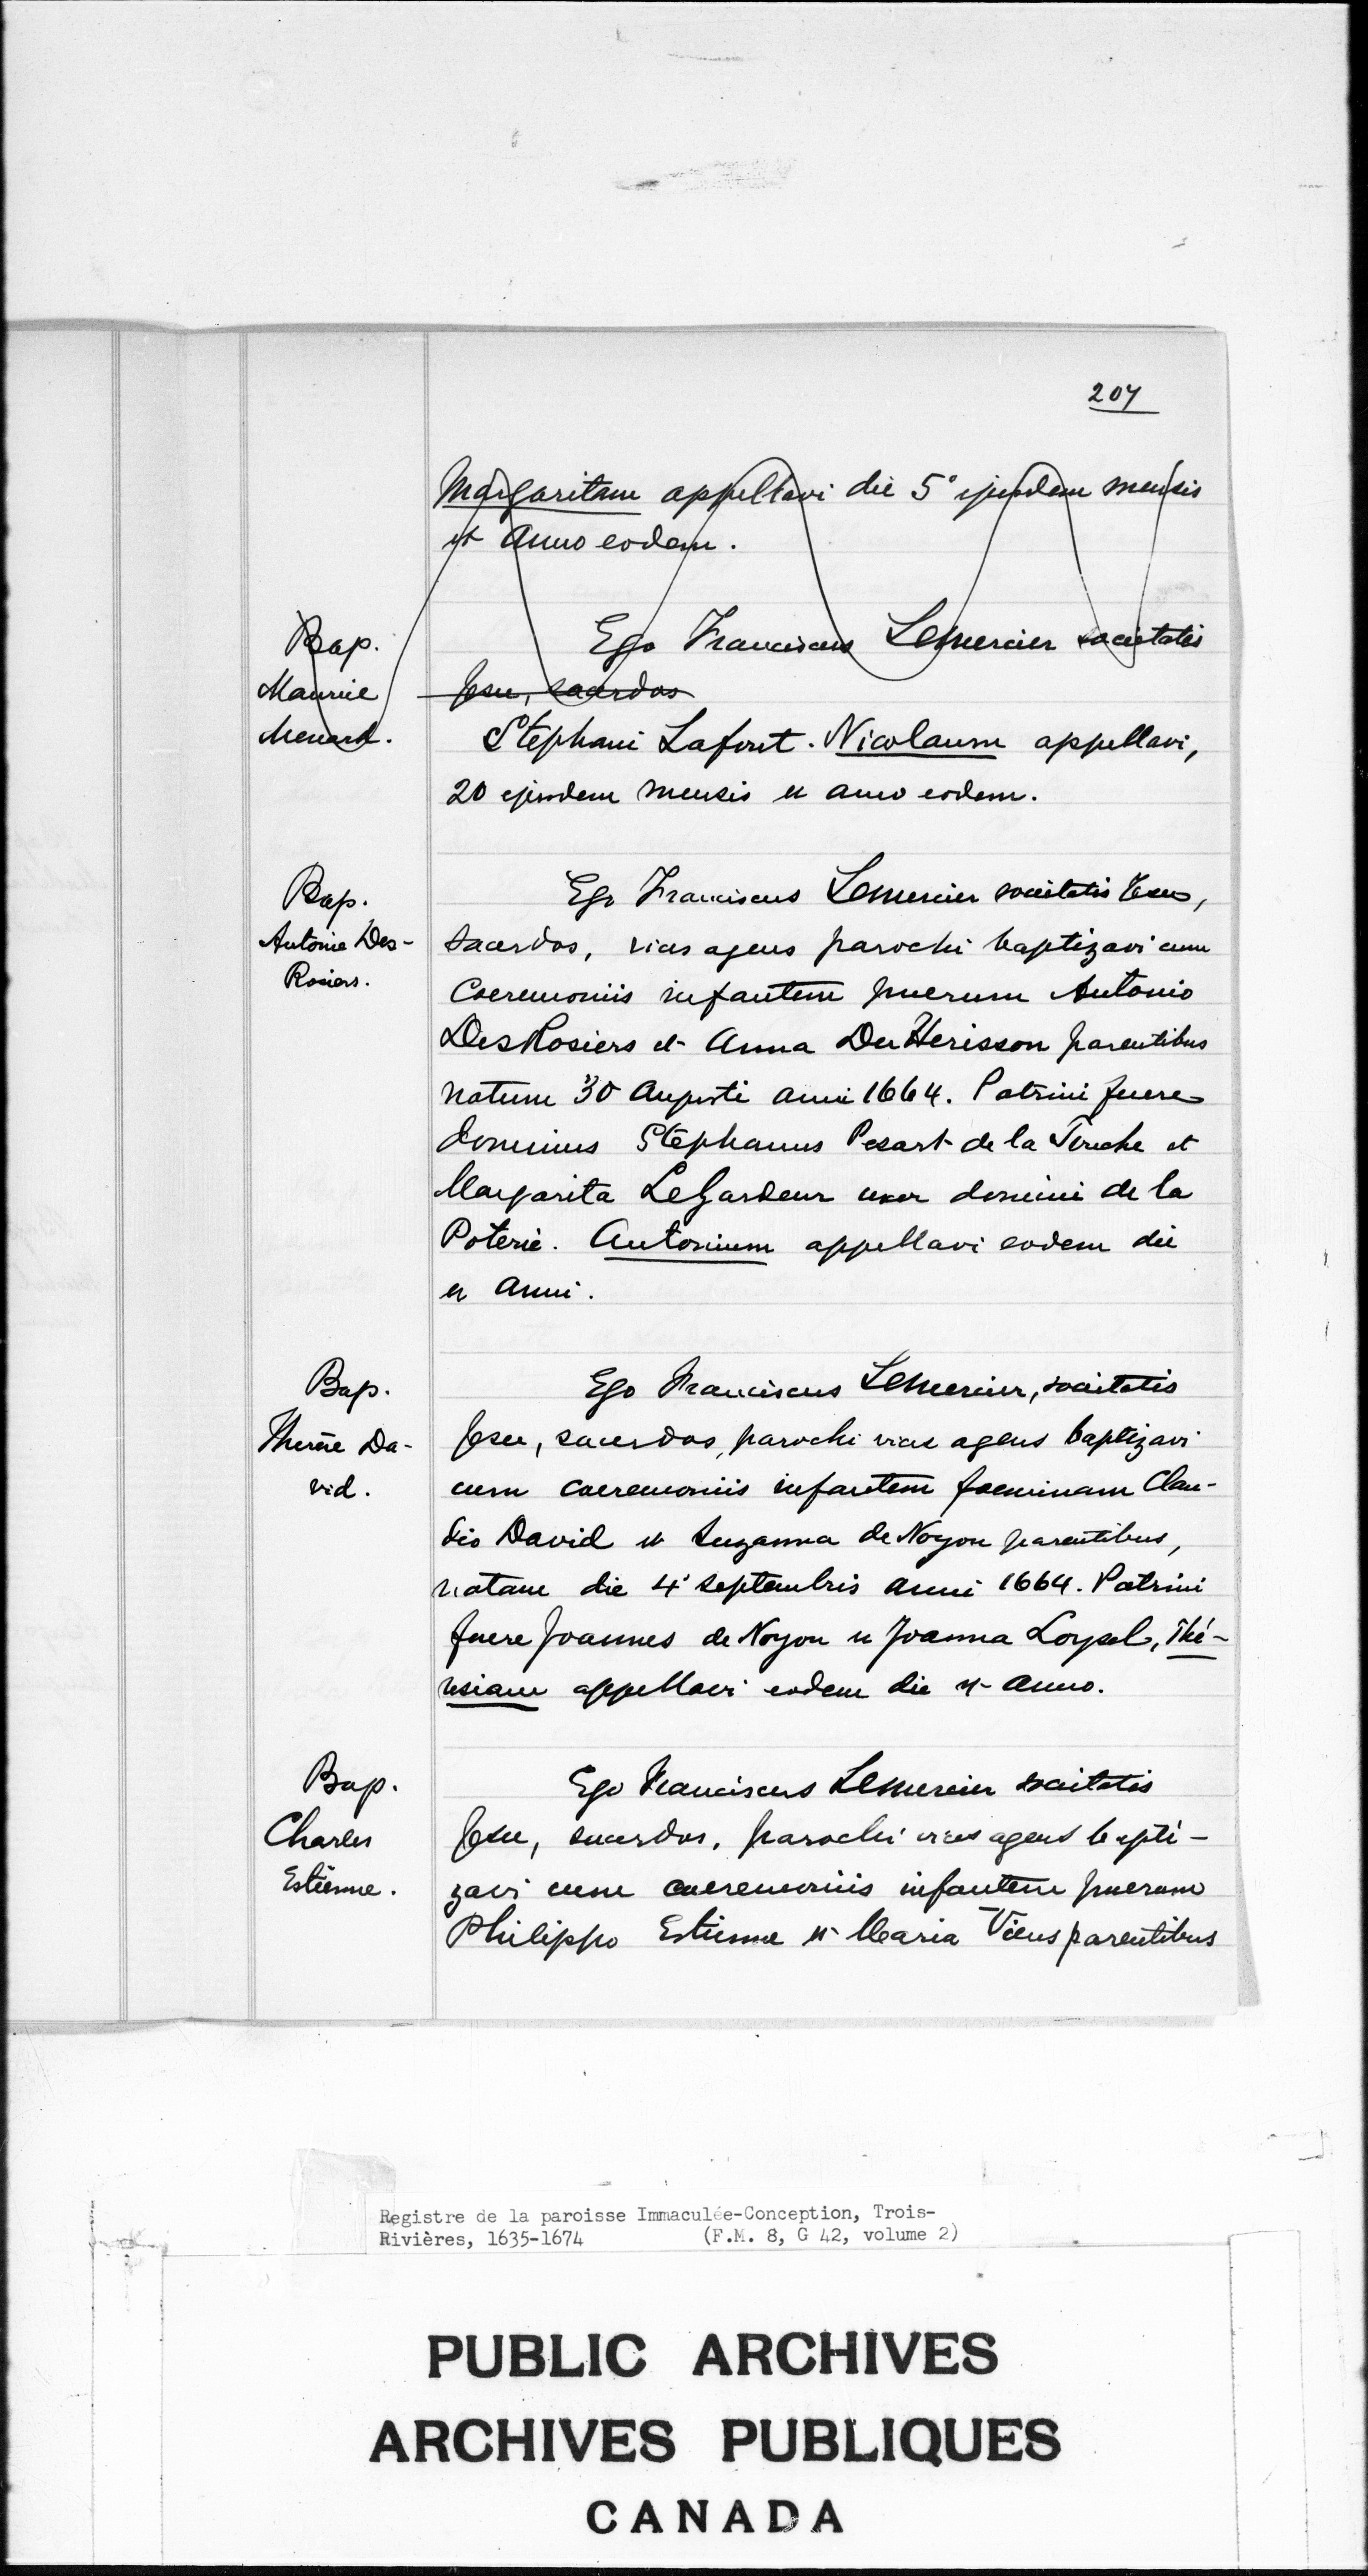 207
Margaritam appellavi die 5° ejusdem mensis
et Anno eodem.
Bap.
Maurice
Menard.
Ego Franciscus Lemercier societatis
Jesu, sacerdos
Stephani Lafont. Nicolaum appellavi,
20 ejusdem mensis et anno eodem.
Bap.
Antoine Des-
Rosiers.
Ego Franciscus Lemercier societatis Jesu,
Sacerdos, vices agens parochi baptizavi cum
Coeremoniis infantem puerum Antonio
DesRosiers et Anna Du Herisson parentibus
natum 30 Augusti anni 1664. Patrini fuere
dominus Stephanus Pesart de la Touche et
Margarita LeGardeur uxor domini de la
Poterie. Antonium appellavi eodem die
et Anni.
Bap.
Therèse Da-
vid.
Ego Franciscus Lemercier, societatis
Jesu, sacerdos, parochi vices agens baptizavi
cum coeremoniis infantem foeminam Clau-
dio David et Suzanna de Noyon parentibus,
natam die 4° septembris anni 1664. Patrini
fuere Joannes de Noyon et Joanna Loysel, Thé-
resiam appellavi eodem die et Anno.
Bap.
Charles
Estienne.
Ego Franciscus Lemercier societatis
Jesu, sacerdos, parochi vices agens bapti-
zavi cum coeremoniis infantem puerum
Philippo Estienne et Maria Vien parentibus
Registre de la paroisse Immaculée-Conception, Trois-
Rivières, 1635-1674 (F.M. 8, G 42, volume 2)
PUBLIC ARCHIVES
ARCHIVES PUBLIQUES
CANADA